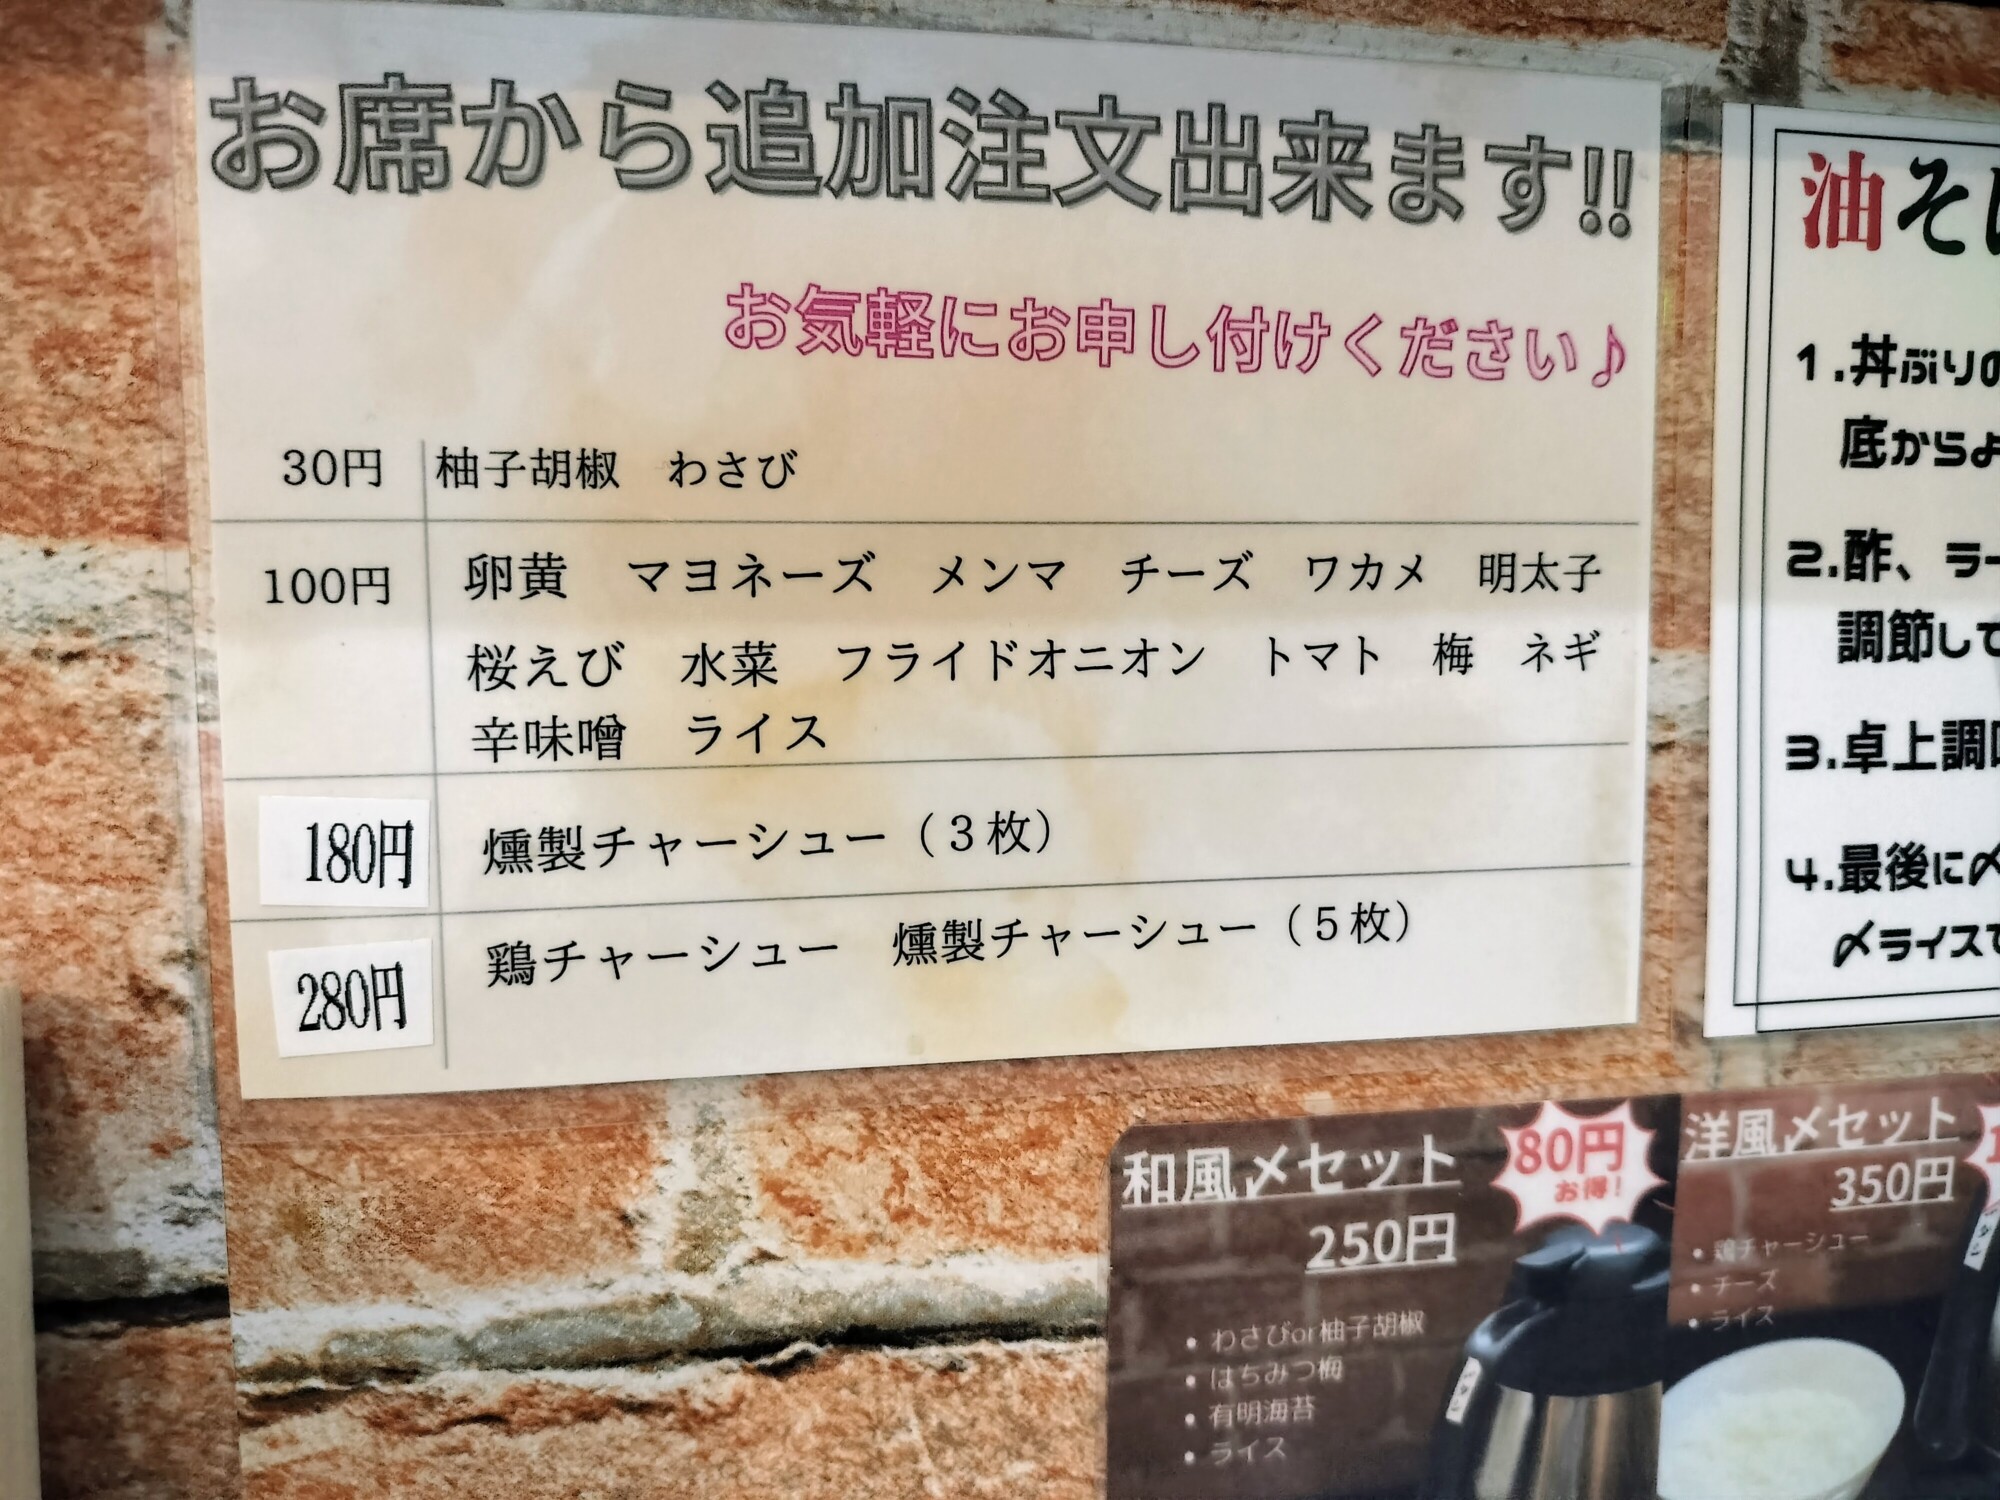 お席から追加注文出来ます!!
お気軽にお申し付けください♪
30円 柚子胡椒 わさび
100円 卵黄 マヨネーズ メンマ チーズ ワカメ 明太子
桜えび 水菜 フライドオニオン トマト 梅 ネギ
辛味噌 ライス
180円 燻製チャーシュー（３枚）
280円 鶏チャーシュー 燻製チャーシュー（５枚）
油そ
1.丼ぶりの
底からよ
2.酢、ラー
調節して
3.卓上調
4.最後に〆
〆ライスで
和風〆セット
80円
お得!
250円
・わさびor柚子胡椒
・はちみつ梅
・有明海苔
・ライス
洋風〆セット
350円
・鶏チャーシュー
・チーズ
・ライス